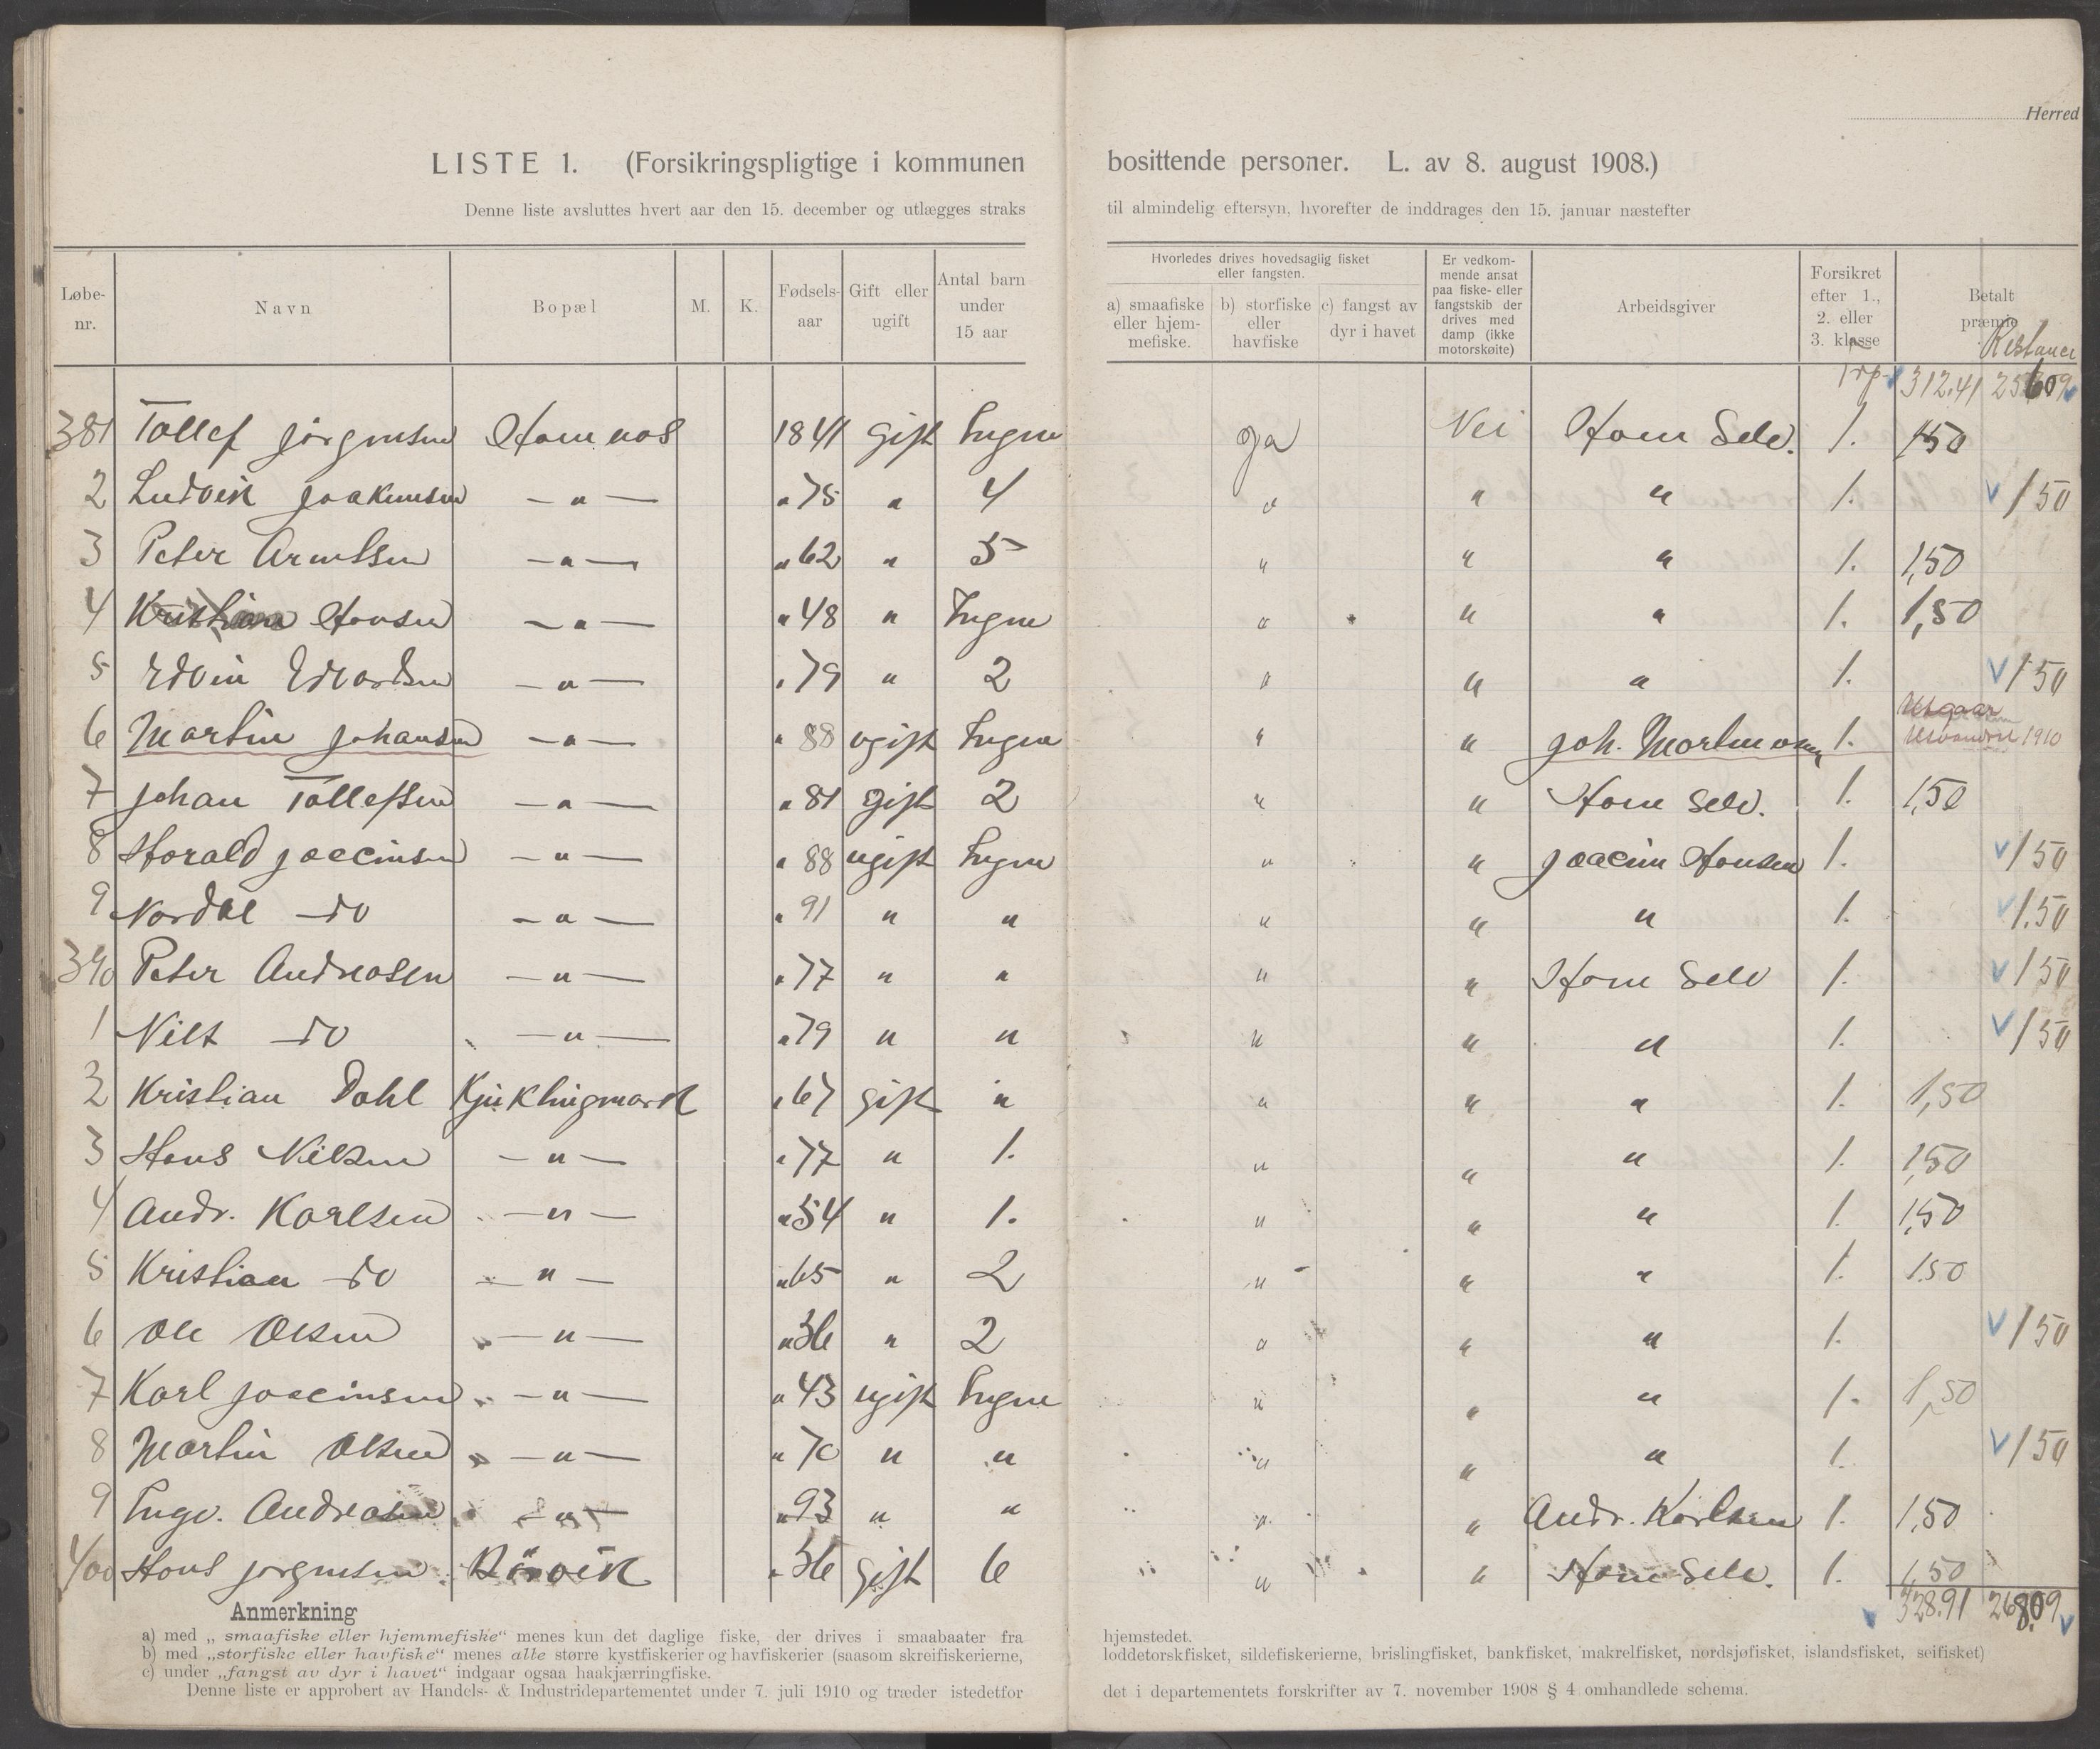 Herred
LISTE 1. (Forsikringspligtige i kommunen bosittende personer. L. av 8. august 1908.)
Denne liste avsluttes hvert aar den 15. december og utlægges straks til almindelig eftersyn, hvorefter de inddrages den 15. januar næstefter
Løbe-nr. Navn Bopæl M. K. Fødsels-aar Gift eller ugift Antal barn under 15 aar Hvorledes drives hovedsaglig fisket eller fangsten. a) smaafiske eller hjem-mefiske. b) storfiske eller havfiske c) fangst av dyr i havet Er vedkom-mende ansat paa fiske- eller fangstskib der drives med damp (ikke motorskøite) Arbeidsgiver Forsikret efter 1., 2. eller 3. klasse Betalt præmie Restance
Trp. 312.41
381 Tollef Jörgensen Hamnos 1841 gift Ingen Ja Nei Ham Selv. 1. 1,50
2 Ludvik Joakimsen — " — " 75 " 4 " " " 1. 1 50
3 Peter Arentsen — " — " 62 " 5 " " " 1. 1,50
4 Kristian Hansen — " — " 48 " Ingen " " " 1. 1,50
5 Edvin Edvardsen — " — " 79 " 2 " " " 1. 1 50
6 Martin Johansen — " — " 88 ugift Ingen " " Joh. Mortensen 1. Utgaar Utvandret 1910
7 Johan Tollefsen — " — " 81 gift 2 " " Ham Selv. 1. 1,50
8 Harald Joacimsen — " — " 88 ugift Ingen " " Joacim Hansen 1. 1 50
9 Nordal do — " — " 91 " " " " " 1. 1.50
390 Peter Andreasen — " — " 77 " " " " Ham Selv 1. 1 50
1 Nils do — " — " 79 " " " " " 1. 1 50
2 Kristian Dahl Kjuklingmark " 67 gift " " " " 1. 1,50
3 Hans Nilsen — " — " 77 " 1. " " " 1. 1,50
4 Andr. Karlsen — " — " 54 " 1. " " " 1. 1,50
5 Kristian do — " — " 65 " 2 " " " 1. 1.50
6 Ole Olsen — " — " 36 " 2 " " " 1. 1 50
7 Karl Joacimsen — " — " 43 ugift Ingen " " " 1. 1,50
8 Martin Olsen — " — " 70 " " " " " 1. 1 50
9 Ingv. Andreasen — " — " 93 " " " " Andr. Karlsen 1. 1,50
400 Hans Jörgensen Rörvik " 36 gift 6 " " Ham Selv. 1. 1,50
328.91 268.09
Anmerkning
a) med „smaafiske eller hjemmefiske“ menes kun det daglige fiske, der drives i smaabaater fra hjemstedet.
b) med „storfiske eller havfiske“ menes alle større kystfiskerier og havfiskerier (saasom skreifiskerierne, loddetorskfisket, sildefiskerierne, brislingfisket, bankfisket, makrelfisket, nordsjøfisket, islandsfisket, seifisket)
c) under „fangst av dyr i havet“ indgaar ogsaa haakjærringfiske.
Denne liste er approbert av Handels- & Industridepartementet under 7. juli 1910 og træder istedetfor det i departementets forskrifter av 7. november 1908 § 4 omhandlede schema.